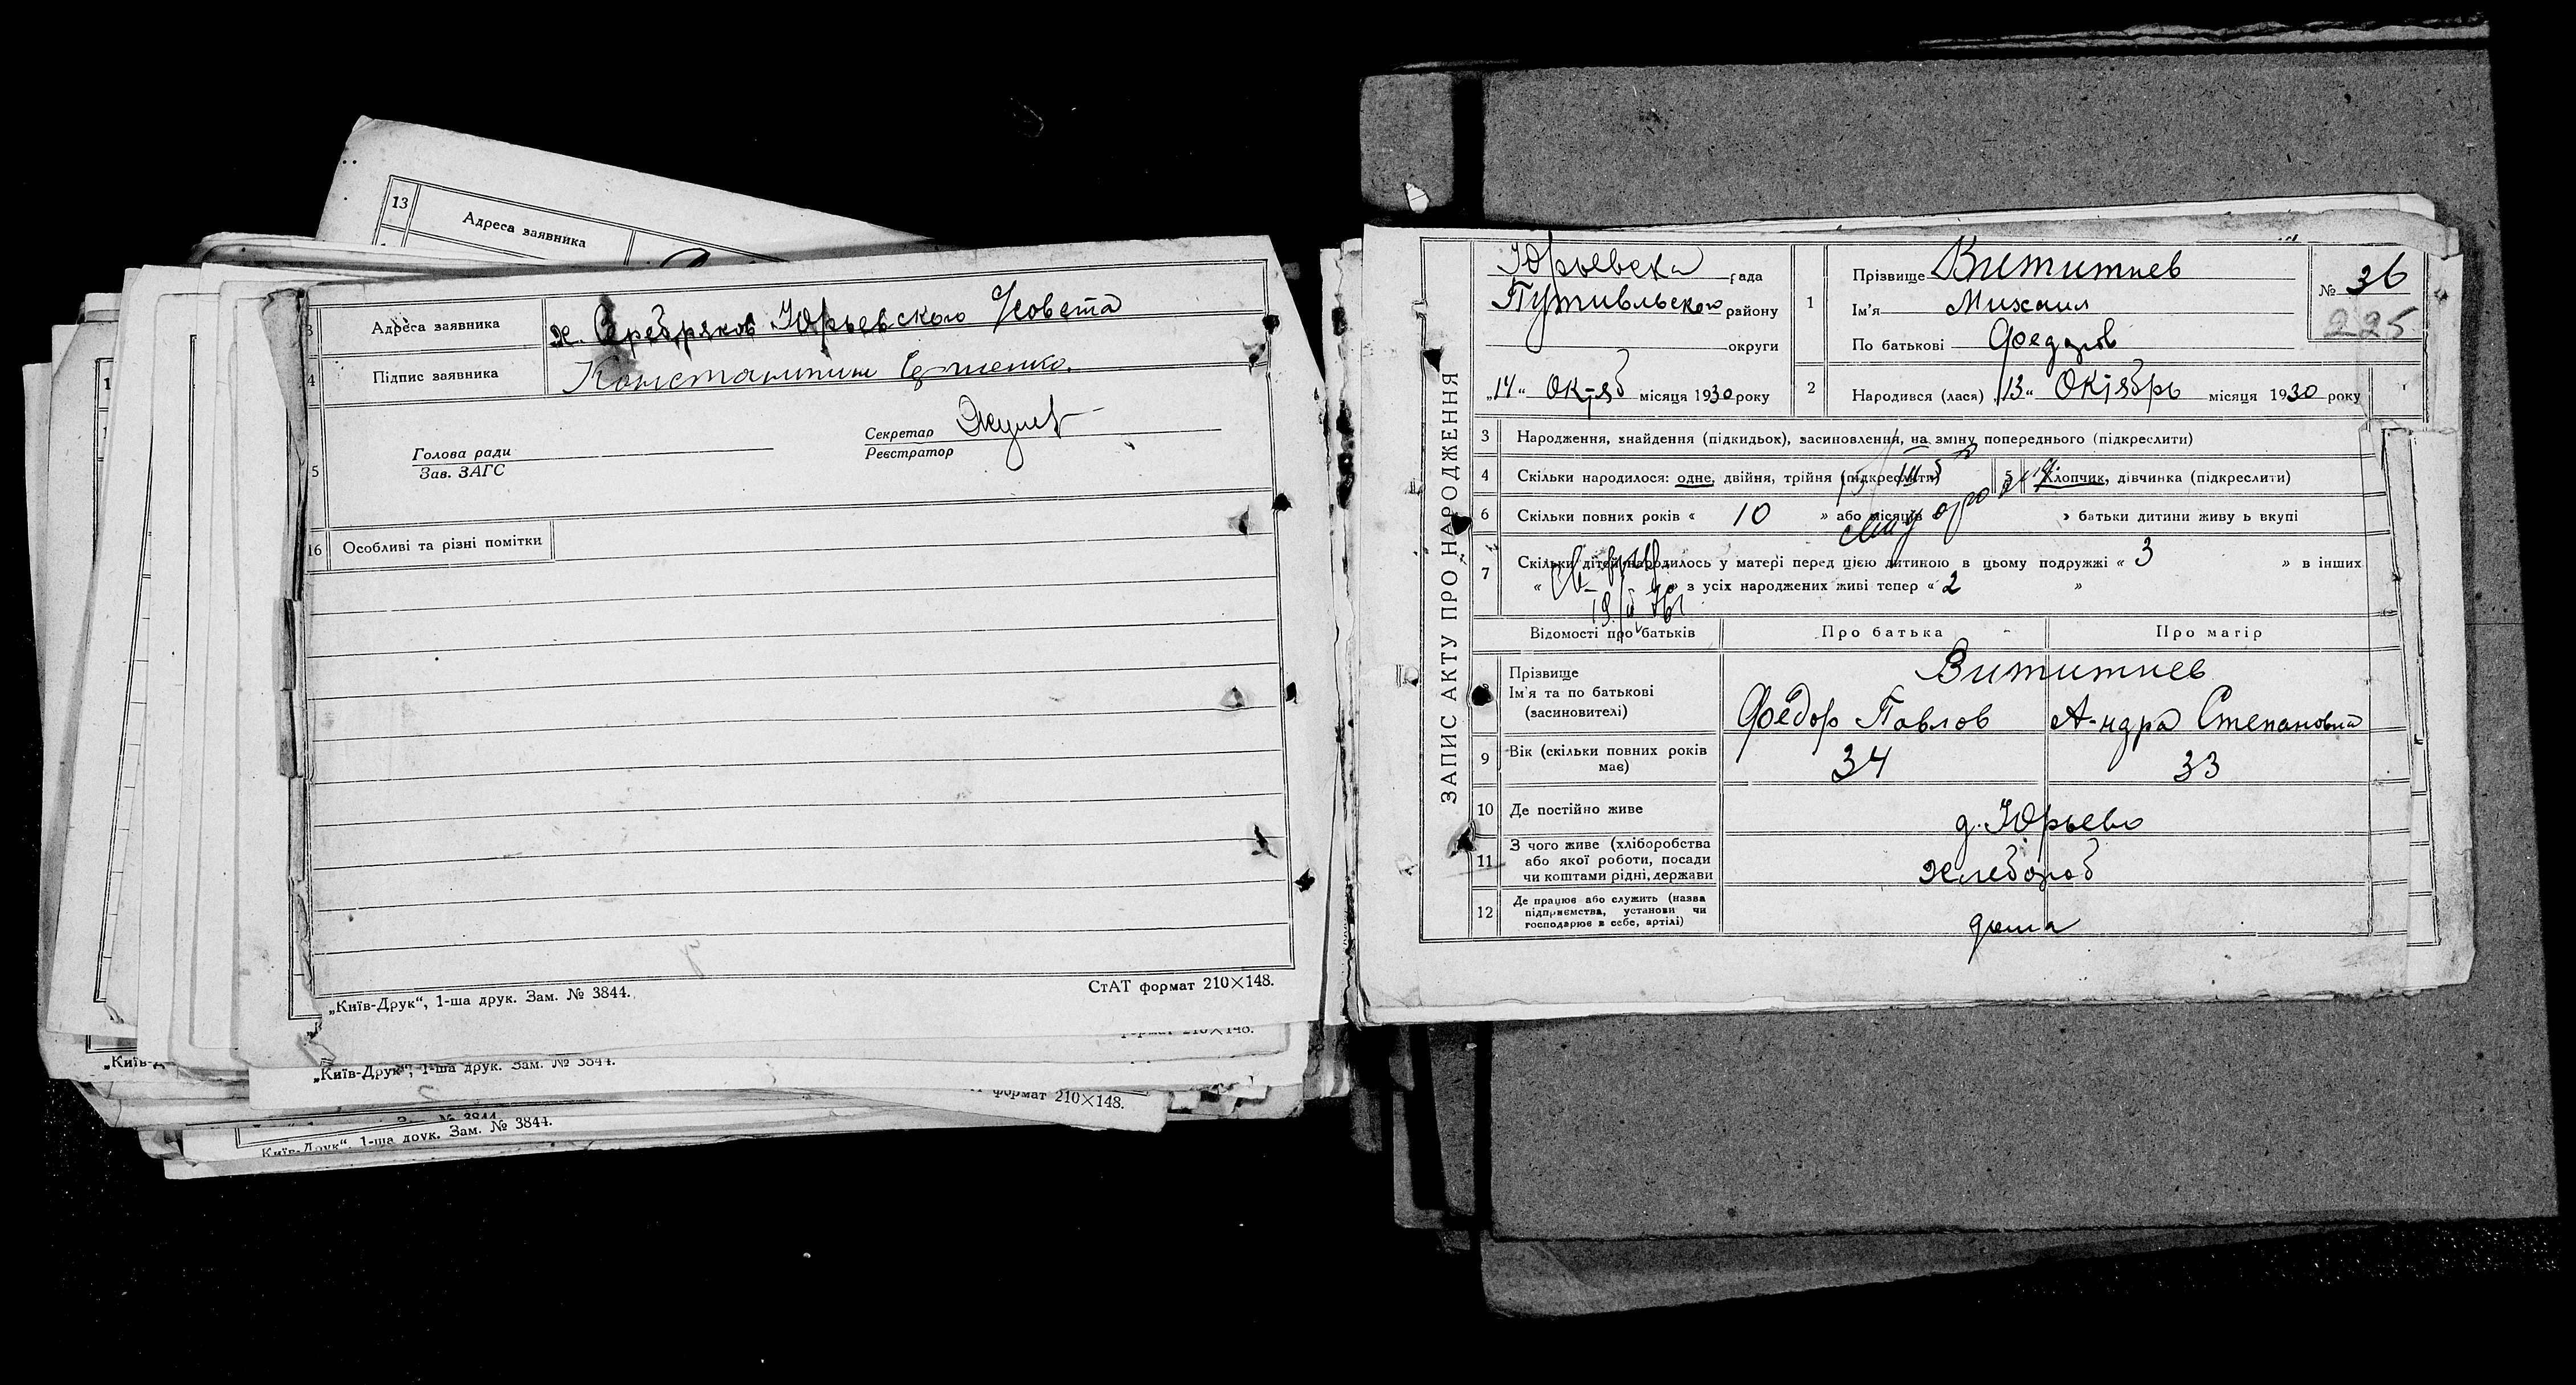 13 Адреса заявника
Адреса заявника х. Серебряков Юрьевского
4 Підпис заявника Константин
Секретар
Голова ради Реєстратор
5 Зав. ЗАГС
16 Особливі та різні помітки
„Київ-Друк“, 1-ша друк. Зам. № 3844. СтАТ формат 210×148.
формат 210×148.
„Київ-Друк“, 1-ша друк. Зам. № 3844.
формат 210×148.
Зам. № 3844
Київ-Друк“, 1-ша друк. Зам. № 3844.
ЗАПИС АКТУ ПРО НАРОДЖЕННЯ
Юрьевска рада
Путивльского району
округи
„14“ Октяб місяця 1930 року
1 Прізвище Вититнев
Ім'я Михаил
По батькові Федоров
№ 36
225
2 Народився (лася) „13“ Октябрь місяця 1930 року
3 Народження, знайдення (підкидьок), засиновлення, на зміну попереднього (підкреслити)
4 Скільки народилося: одне, двійня, трійня (підкреслити) 5 Хлопчик, дівчинка (підкреслити)
6 Скільки повних років « 10 » або місяців » батьки дитини живуть вкупі
7 Скільки дітей народилось у матері перед цією дитиною в цьому подружжі « 3 » в інших
« » з усіх народжених живі тепер « 2 »
Відомості про батьків Про батька Про матір
Прізвище Вититнев
Ім'я та по батькові
(засиновителі) Фёдор Павлов Степановна
9 Вік (скільки повних років має) 34 33
10 Де постійно живе д. Юрьево
11 З чого живе (хліборобства
або якої роботи, посади
чи коштами рідні, держави хлебороб
12 Де працює або служить (назва
підприємства, установи чи
господарює в себе, артілі) дома